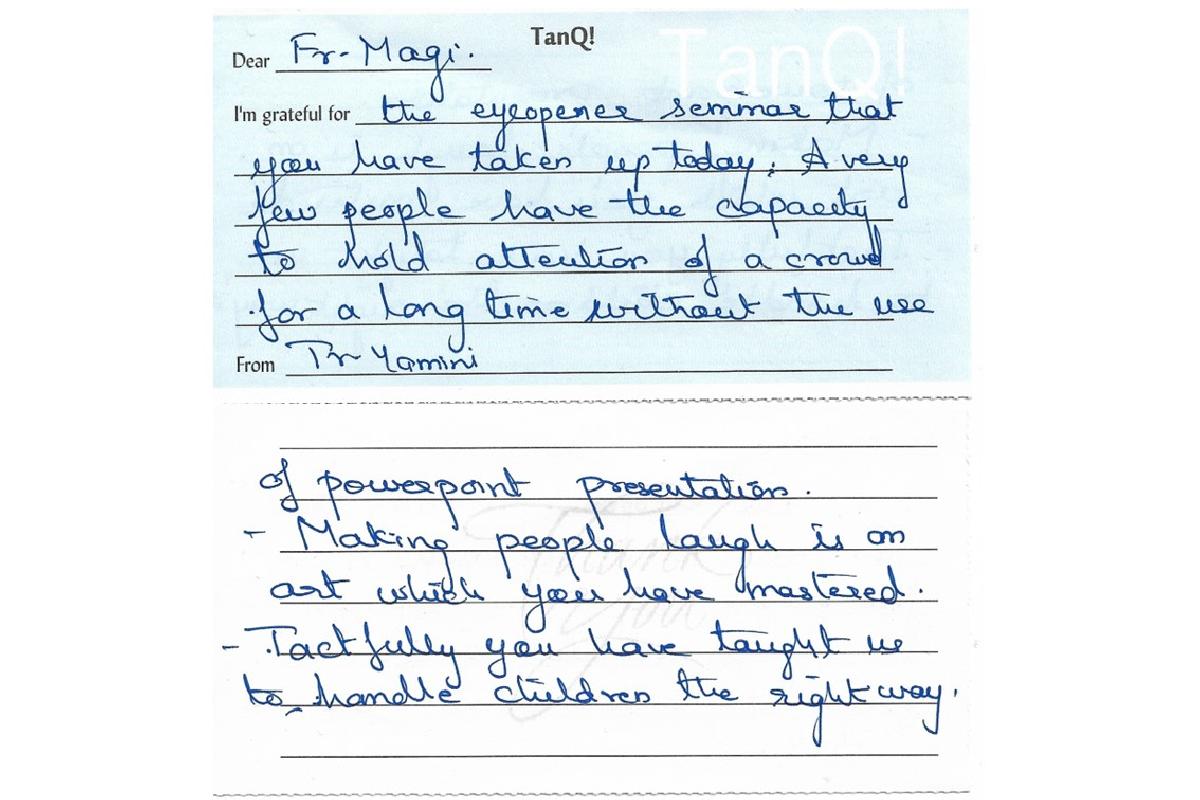 TanQ!
TanQ!
Dear Fr. Magi.
I'm grateful for the eyeopener seminar that
you have taken up today. A very
few people have the capacity
to hold attention of a crowd
for a long time without the use
From Tr Yamini
of powerpoint presentation.
- Making people laugh is an
art which you have mastered.
- Tactfully you have taught us
to handle children the right way.
Thank
You